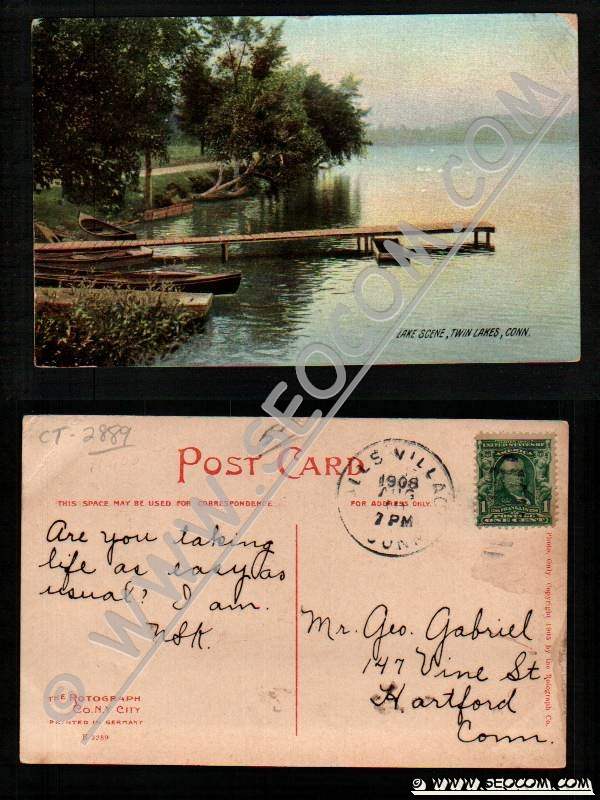 LAKE SCENE, TWIN LAKES, CONN.
© WWW.SEOCOM.COM
CT-2889
POST CARD
THIS SPACE MAY BE USED FOR CORRESPONDENCE.
FOR ADDRESS ONLY.
Are you taking
life as easy as
usual? I am.
Mr. Geo. Gabriel
147 Vine St.
Hartford
Conn.
THE ROTOGRAPH
CO. N.Y. CITY
PRINTED IN GERMANY
1908
AUG
7 PM
CONN
UNITED STATES OF
AMERICA
1 1
ONE CENT
Photo, Only, Copyright 1905 by the Rotograph Co.
© WWW.SEOCOM.COM